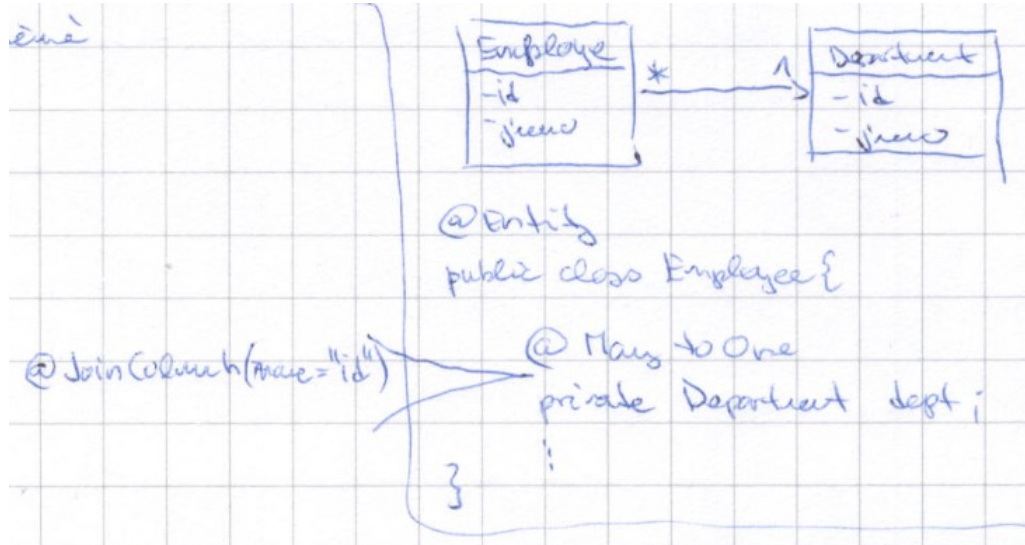 Employe
* 1
Department
-id
-jmeno
-id
-jmeno
@Entity
public class Employee {
@JoinColumn(name="id")
@ Many to One
private Department dept ;
⋮
}